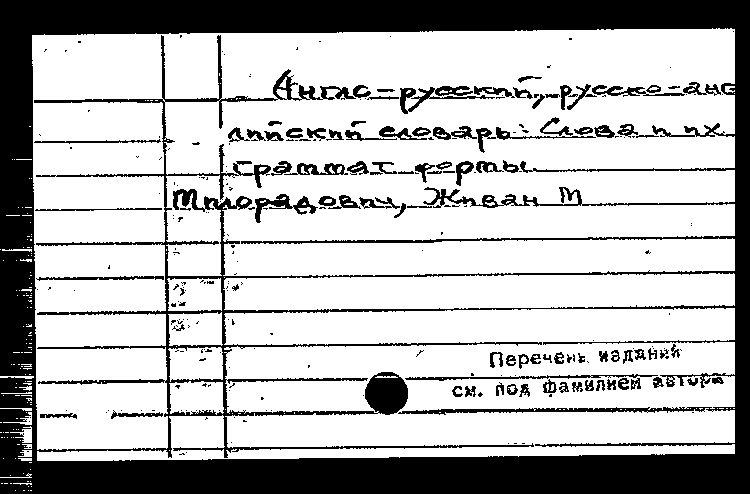 Англо-русский, русско-анг
лийский словарь: Слова и их
граммат формы
Милорадович, Живан М
Перечень изданий
см. под фамилией автора